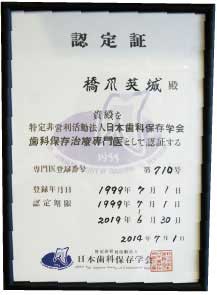 認定証
橋爪英城 殿
貴殿を
特定非営利活動法人日本歯科保存学会
歯科保存治療専門医として認証する
1955
専門医登録番号 第710号
登録年月日 1999年7月1日
認定期限 1999年7月1日
2019年6月30日
2014年7月1日
特定非営利活動法人
日本歯科保存学会